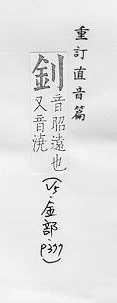 重訂直音篇
釗
音昭遠也
又音澆
金部